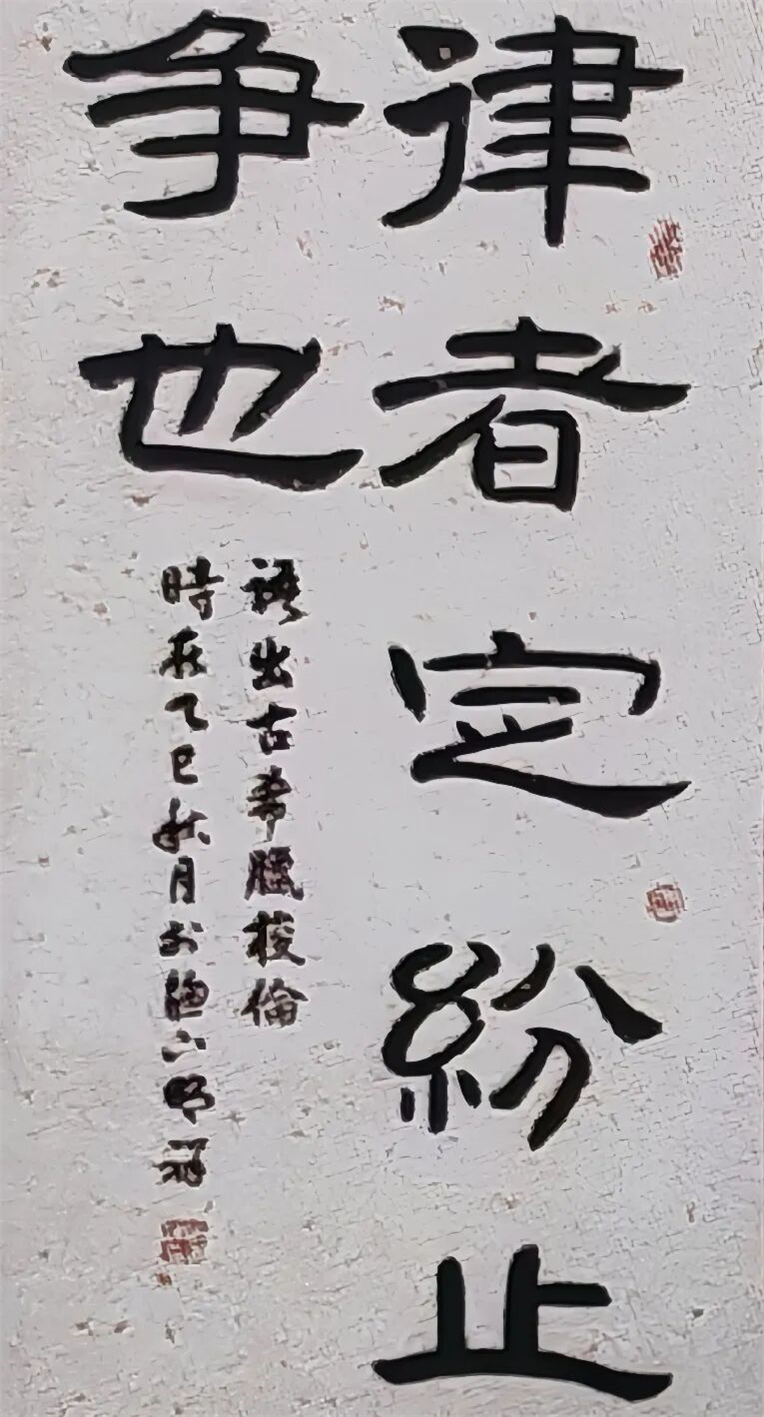 律者定紛止
争也
語出古希臘梭倫
時在乙巳秋月於